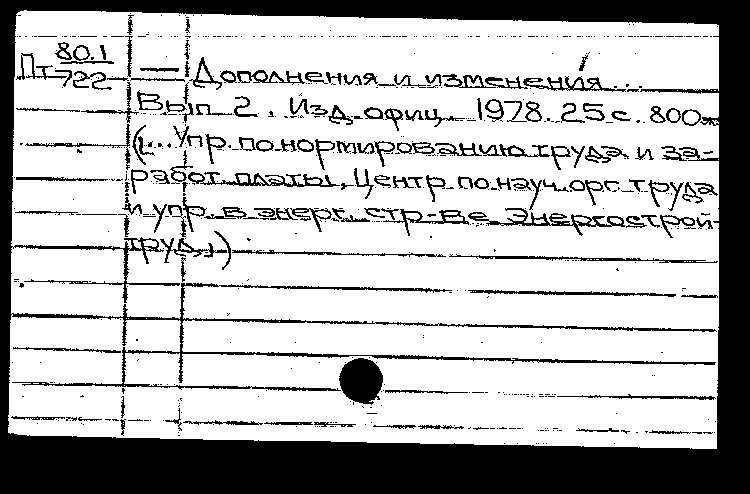 Пт 80.1/722 — Дополнения и изменения...
Вып 2. Изд. офиц. 1978. 25 с. 800
(... Упр. по нормированию труда и за-
работ. платы, Центр по науч. орг. труда
и упр. в энерг. стр-ве Энергострой-
труд,,)